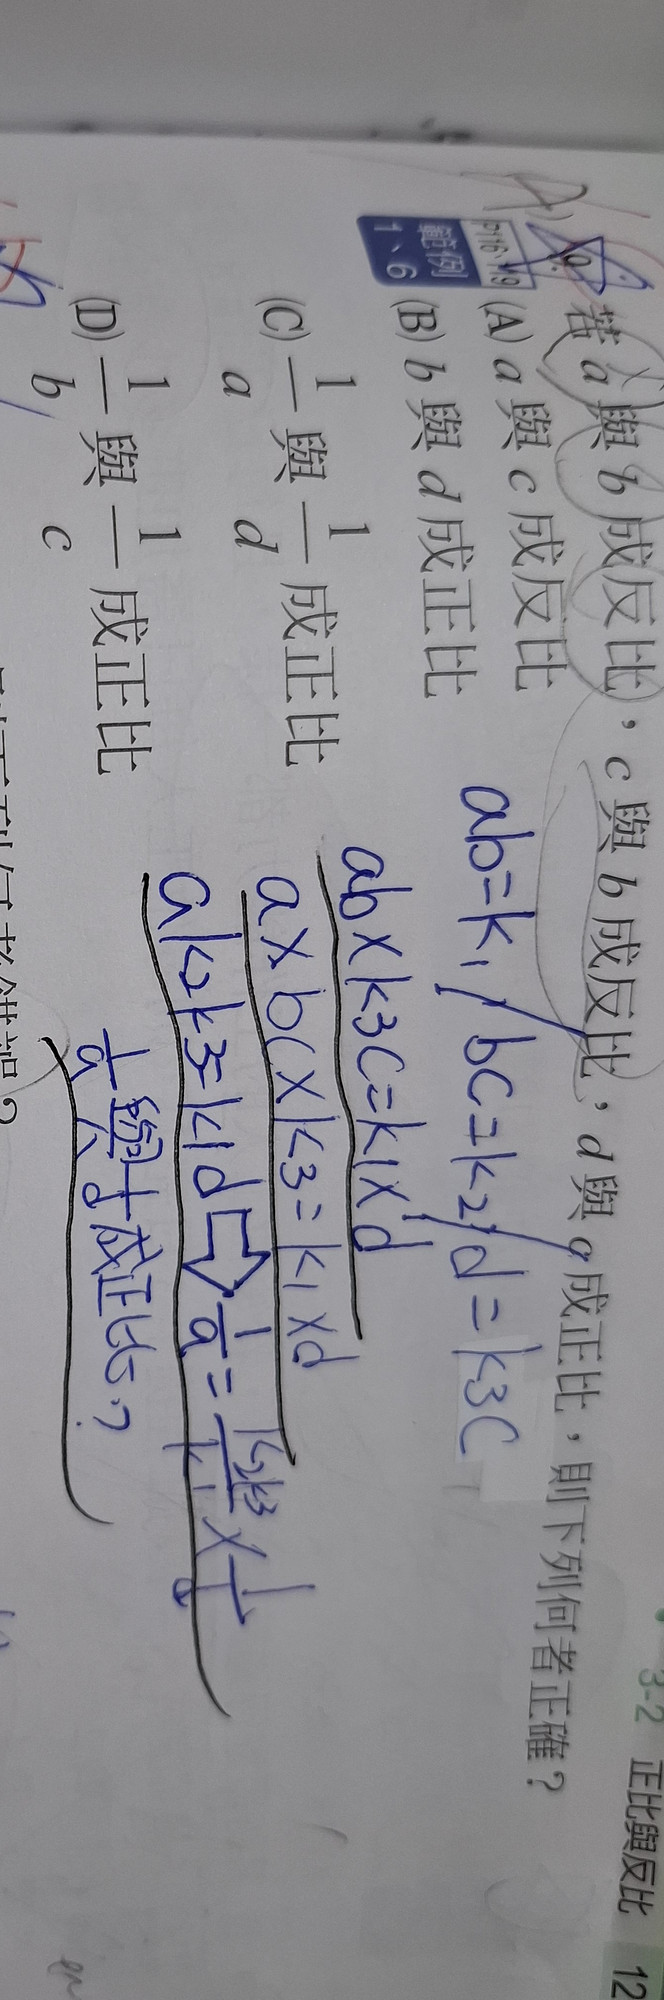 3-2 正比與反比 12
9. 若a與b成反比，c與b成反比，d與a成正比，則下列何者正確？
P116、119
範例
1、6
(A) a與c成反比
(B) b與d成正比
(C) 1/a 與 1/d 成正比
(D) 1/b 與 1/c 成正比
ab=k1 / bc=k2 / d=k3c
ab×k3c=k1×d
a×bc×k3=k1×d
ak2k3=k1d ⇨ 1/a = k2k3/k1 × 1/d
1/a 與 1/d 成正比？